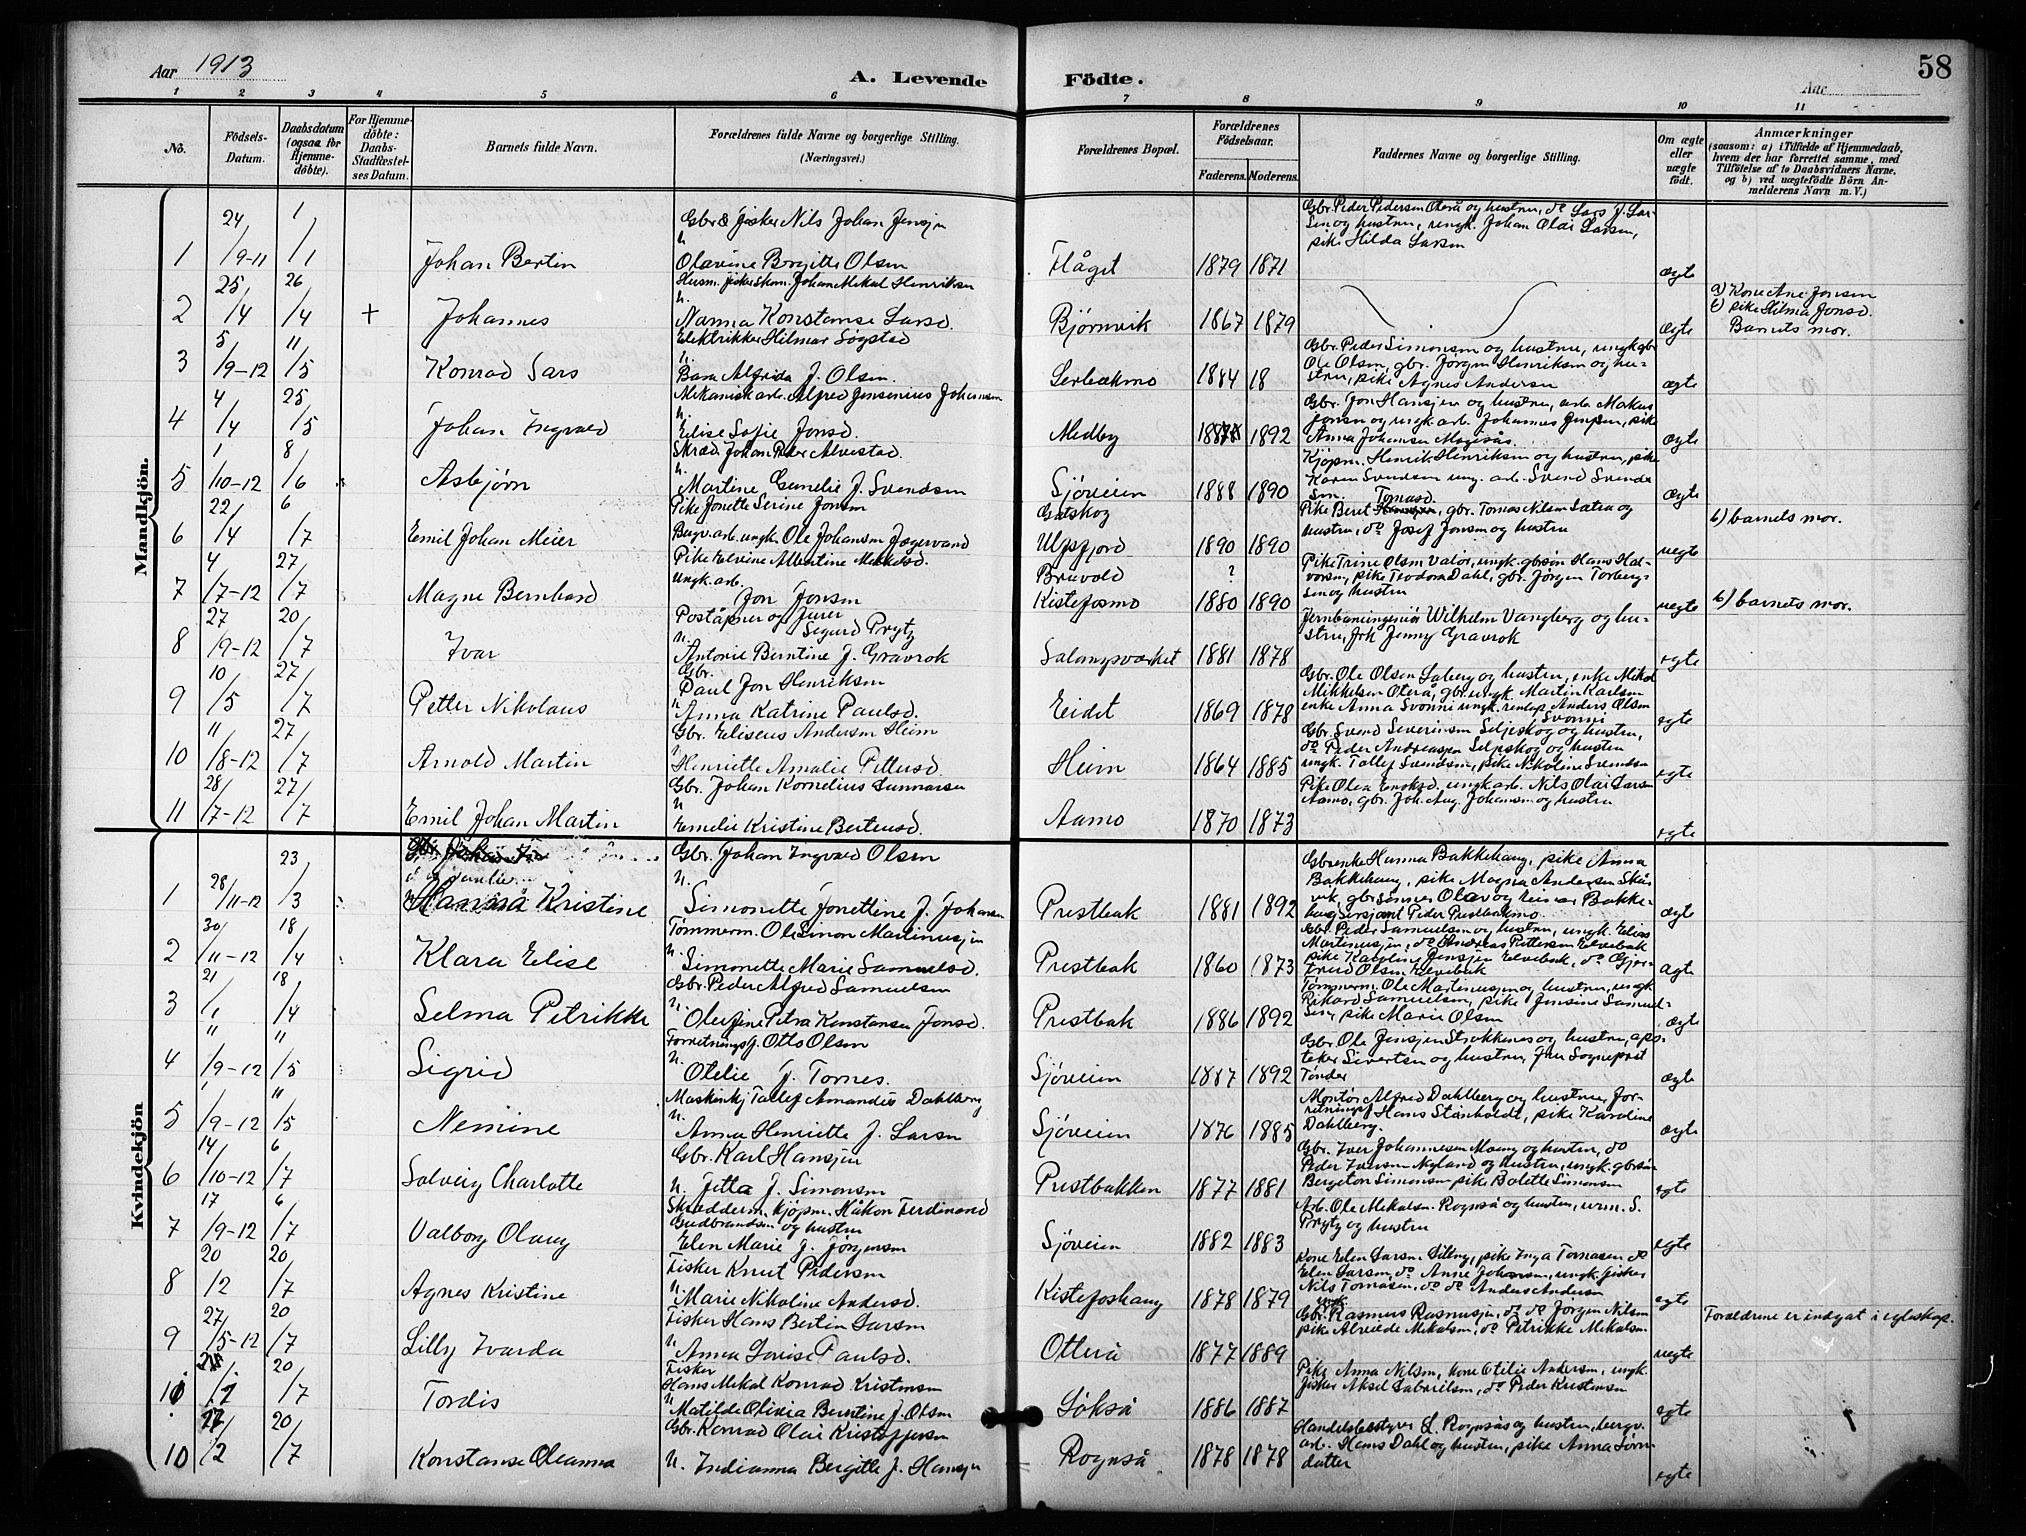 Aar 1913
A. Levende Födte.
Aar
58
1 2 3 4 5 6 7 8 9 10 11
No.
Födsels-
Datum.
Daabsdatum
(ogsaa for
Hjemme-
döbte).
For Hjemme-
döbte:
Daabs-
Stadfæstel-
ses Datum.
Barnets fulde Navn.
Forældrenes fulde Navne og borgerlige Stilling.
(Næringsvei.)
Forældrenes Bopæl.
Forældrenes
Födselsaar.
Faderens. Moderens.
Faddernes Navne og borgerlige Stilling.
Om ægte
eller
uægte
født.
Anmærkninger
(saasom: a) i Tilfælde af Hjemmedaab,
hvem der har forrettet samme, med
Tilföielse af to Daabsvidners Navne,
og b) ved uægtefödte Börn An-
melderens Navn m. V.)
Mandkjön.
1 24/9-11 1/1 Johan Bertin
Gbr & fisker Nils Johan Jensen
u. Olavine Birgitte Olsen
Flåget 1879 1871
Gbr. Peder Pedersen Oterå og hustru, do Lars J. Lar-
sen og hustru, ungk. Johan Olai Larsen,
pike Hilda Larsen
ægte
2 25/4 26/4 + Johannes
Husm. fisker Skom. Johan Mikal Henriksen
u. Nanna Konstanse Larsd.
Bjørnvik 1867 1879
ægte
a) Kone Ane Jonsen
b) pike Hilma Jonsd.
Barnets mor.
3 5/9-12 11/5 Konrad Lars
Elektrikker Hilmar Søgstad
u. Bara Alfrida J. Olsen.
1884 18
Gbr. Peder Simonsen og hustru, ungk gbr
Ole Olsen, gbr. Jørgen Henriksen og hu-
stru, pike Agnes Andersen
ægte
4 4/4 25/5 Johan Ingvald
Mekanisk arb. Alfred Jensenius Johansen
u. Elise Sofie Jonsd.
Medby 1892
Gbr. Jon Hansen og hustru, arb. Markus
Jonsen og ungk. arb. Johannes Jensen, pike
Anna Johansen Mogesås.
ægte
5 1/10-12 8/6 Asbjørn
Skræd. Johan Peder Alvestad.
u. Martine Gunelie J. Svendsen
Sjøveien 1888 1890
Kjøpm. Henrik Henriksen og hustru, pike
Karen Svendsen ung. arb. Svend Svend-
sen.
ægte
6 22/4 6/7 Emil Johan Meier
Pike Jonette Serine Jonsen
Bergv. arb. ungk. Ole Johansen Jægervand
Gatskog
Ulfsfjord 1890 1890
Pike Beret Tomasd., gbr. Tomas Nilsen Sætra og
hustru, do Josef Jonsen og hustru
uegte
b) barnets mor.
7 4/7-12 27/7 Magne Bernhard
Pike Elvine Albertine Mikkelsd.
Ungk. arb. Jon Jonsen
Bruvold ?
Kistefosmo 1880 1890
Pike Trine Olsen Valør, ungk. gbrsøn Hans Hal-
vorsen, pike Teodora Dahl, gbr. Jørgen Torberg-
sen og hustru
uegte
b) barnets mor.
8 27/9-12 20/7 Ivar
Poståpner og furer
Sigurd Prytz
u. Antonie Berntine J. Gravrok
Salangsverket 1881 1878
Jernbaneingeniør Wilhelm Vangberg og hu-
stru, frk Jenny Gravrok
egte
9 10/5 27/7 Petter Nikolaus
Gbr. Paul Jon Henriksen
u. Anna Katrine Paulsd.
Eidet 1869 1878
Gbr. Ole Olsen Saberg og hustru, enke Mikal
Mikkelsen Oterå, gbr. ungk. Martin Karlsen
enke Anna Svonni ungk. renlap Anders Olsen
Svonni
egte
10 11/8-12 27/7 Arnold Martin
Gbr. Eliseus Andersen Heim
u. Henriette Amalie Pettersd.
Heim 1864 1885
Gbr. Svend Severinsen Seljeskog og hustru,
do Peder Andreassen Seljeskog og hustru
ungk. Tollef Svendsen, pike Nikoline Svendsen
egte
11 28/7-12 27/7 Emil Johan Martin
Gbr. Johan Kornelius Gunnarsen
u. Emelie Kristine Bertensd.
Aamo 1870 1873
Pike Olea Enoksd. ungk arb. Nils Olai Larsen
Aamo, gbr. Joh. Aug. Johansen og hustru
egte
Kvindekjön
1 28/11-12 23/3 Kristine
Gbr. Johan Ingvald Olsen
u. Simonette Jonettine J. Johansen
Prestbak 1881 1892
Gbrenke Hanna Bakkehaug, pike Anna
Bakkehaug, pike Magna Andersen Skår-
vik, gbrsønner Olav og Einar Bakke-
haug Sersjant Peder Prestbakmo.
ægte
2 30/11-12 18/4 Klara Elise
Tømmerm. Ole Simon Martinussen
u. Simonette Marie Samuelsd.
Prestbak 1860 1873
Gbr. Peder Samuelsen og hustru, ungk. Elias
Martinussen, do Andreas Pettersen Elvebak
pike Karoline Jensen Elvebak, do Gjer-
trud Olsen Elvebak
ægte
3 21/1 18/4 Selma Petrikke
Gbr. Peder Alfred Samuelsen
u. Olufine Petra Konstanse Jonsd.
Prestbak 1886 1892
Tømmerm. Ole Martinussen og hustru, ungk
Rikard Samuelsen, pike Jensine Samuel-
sen, pike Marie Olsen
ægte
4 11/9-12 11/5 Sigrid
Forretningsf. Otto Olsen
u. Otelie J. Tornes.
Sjøveien 1887 1892
Gbr. Ole Jensen Strokkenes og hustru, apo-
teker Sivertsen og hustru, fru Sogneprest
Tønder
ægte
5 1/9-12 11/5 Nemine
Maskinkj Tollef Amandus Dahlberg
u. Anna Henriette J. Larsen
Sjøveien 1876 1885
Montør Alfred Dahlberg og hustru, for-
retningsf Hans Stenholdt, pike Karoline
Dahlberg.
ægte
6 14/10-12 6/7 Solveig Charlotte
Gbr. Karl Hansen
u. Jetta J. Simonsen
Prestbakken 1877 1881
Gbr. Iver Johannesen Moeng og hustru, do
Peder Iversen Nyland og hustru, ungk. gbrsøn
Bergeton Simonsen pike Bolette Simonsen
egte
7 17/9-12 6/7 Valborg Olaug
Skredderm. kjøpm. Håkon Ferdinand
Gudbrandsen og hustru
Elen Marie J. Jørgensen
Sjøveien 1882 1883
Arb. Ole Mikalsen Rognså og hustru, urm. S.
Prytz og hustru
egte
8 20/2 20/7 Agnes Kristine
Fisker Knut Pedersen
u. Marie Nikoline Andersd.
Kistefoshaug 1878 1879
Kone Elen Larsen Silling, pike Inga Tomasen do
Elen Larsen, do Anne Johansen, ungk. fisker
Nils Tomasen, do do Anders Andersen
egte
9 27/5-12 20/7 Lilly Ivarda
Fisker Hans Bertin Larsen
u. Anna Lovise Paulsd.
Otterå 1877 1889
ungk.
Gbr. Rasmus Rasmussen, do do Jørgen Nilsen
pike Alvilde Mikalsen, do Petrikke Mikalsen
uegte
Forældrene er indgat i egteskap.
10 20/7 Tordis
Fisker
Hans Mikal Konrad Kristensen
u. Matilde Olivia Berntine J. Olsen
Løkså 1886 1887
Pike Anna Nilsen, kone Otilie Andersen, ungk.
fisker Aksel Gabrielsen, do Peder Kristensen
egte
10 27/2 20/7 Konstanse Oleanna
Gbr. Konrad Olai Kristoffersen
u. Indianna Bergitte J. Hansen
Rognså 1878 1878
Handelsbestyrer L. Rognsås og hustru, bergv.
arb. Hans Dahl og hustru, pike Anna Sørn-
datter
egte